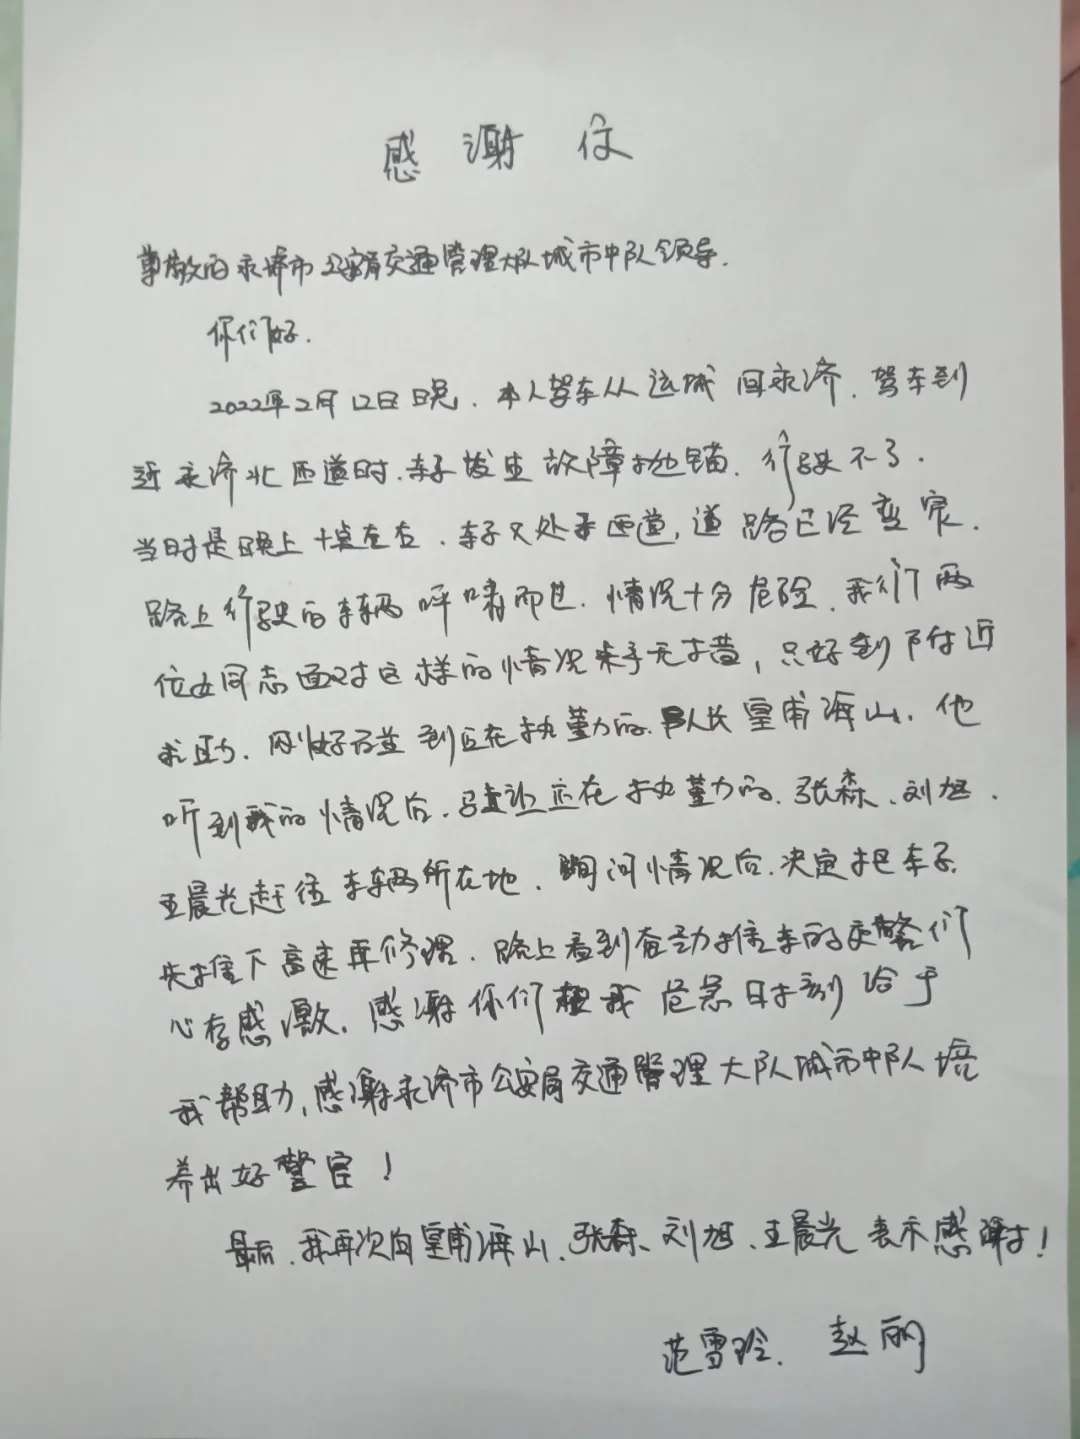 感谢信
尊敬的永济市公安局交通管理大队城市中队领导.
你们好.
2022年2月12日晚.本人驾车从运城回永济.驾车到
近永济北匝道时.车子发生故障抛锚.行驶不了.
当时是晚上十点左右.车子又处于匝道,道路已经变窄.
路上行驶的车辆呼啸而过.情况十分危险.我们两
位女同志面对这样的情况束手无措,只好到附近
求助.刚好碰到正在执勤的.队长皇甫海山.他
听到我的情况后.马上让正在执勤的.张森、刘旭.
王晨光赶往车辆所在地.询问情况后.决定把车子
先推下高速再修理.路上看到奋力推车的交警们
心存感激.感谢你们在我危急时刻给予
我帮助,感谢永济市公安局交通管理大队城市中队培
养出好警官!
最后.我再次向皇甫海山.张森、刘旭、王晨光表示感谢!
范雪玲.赵丽